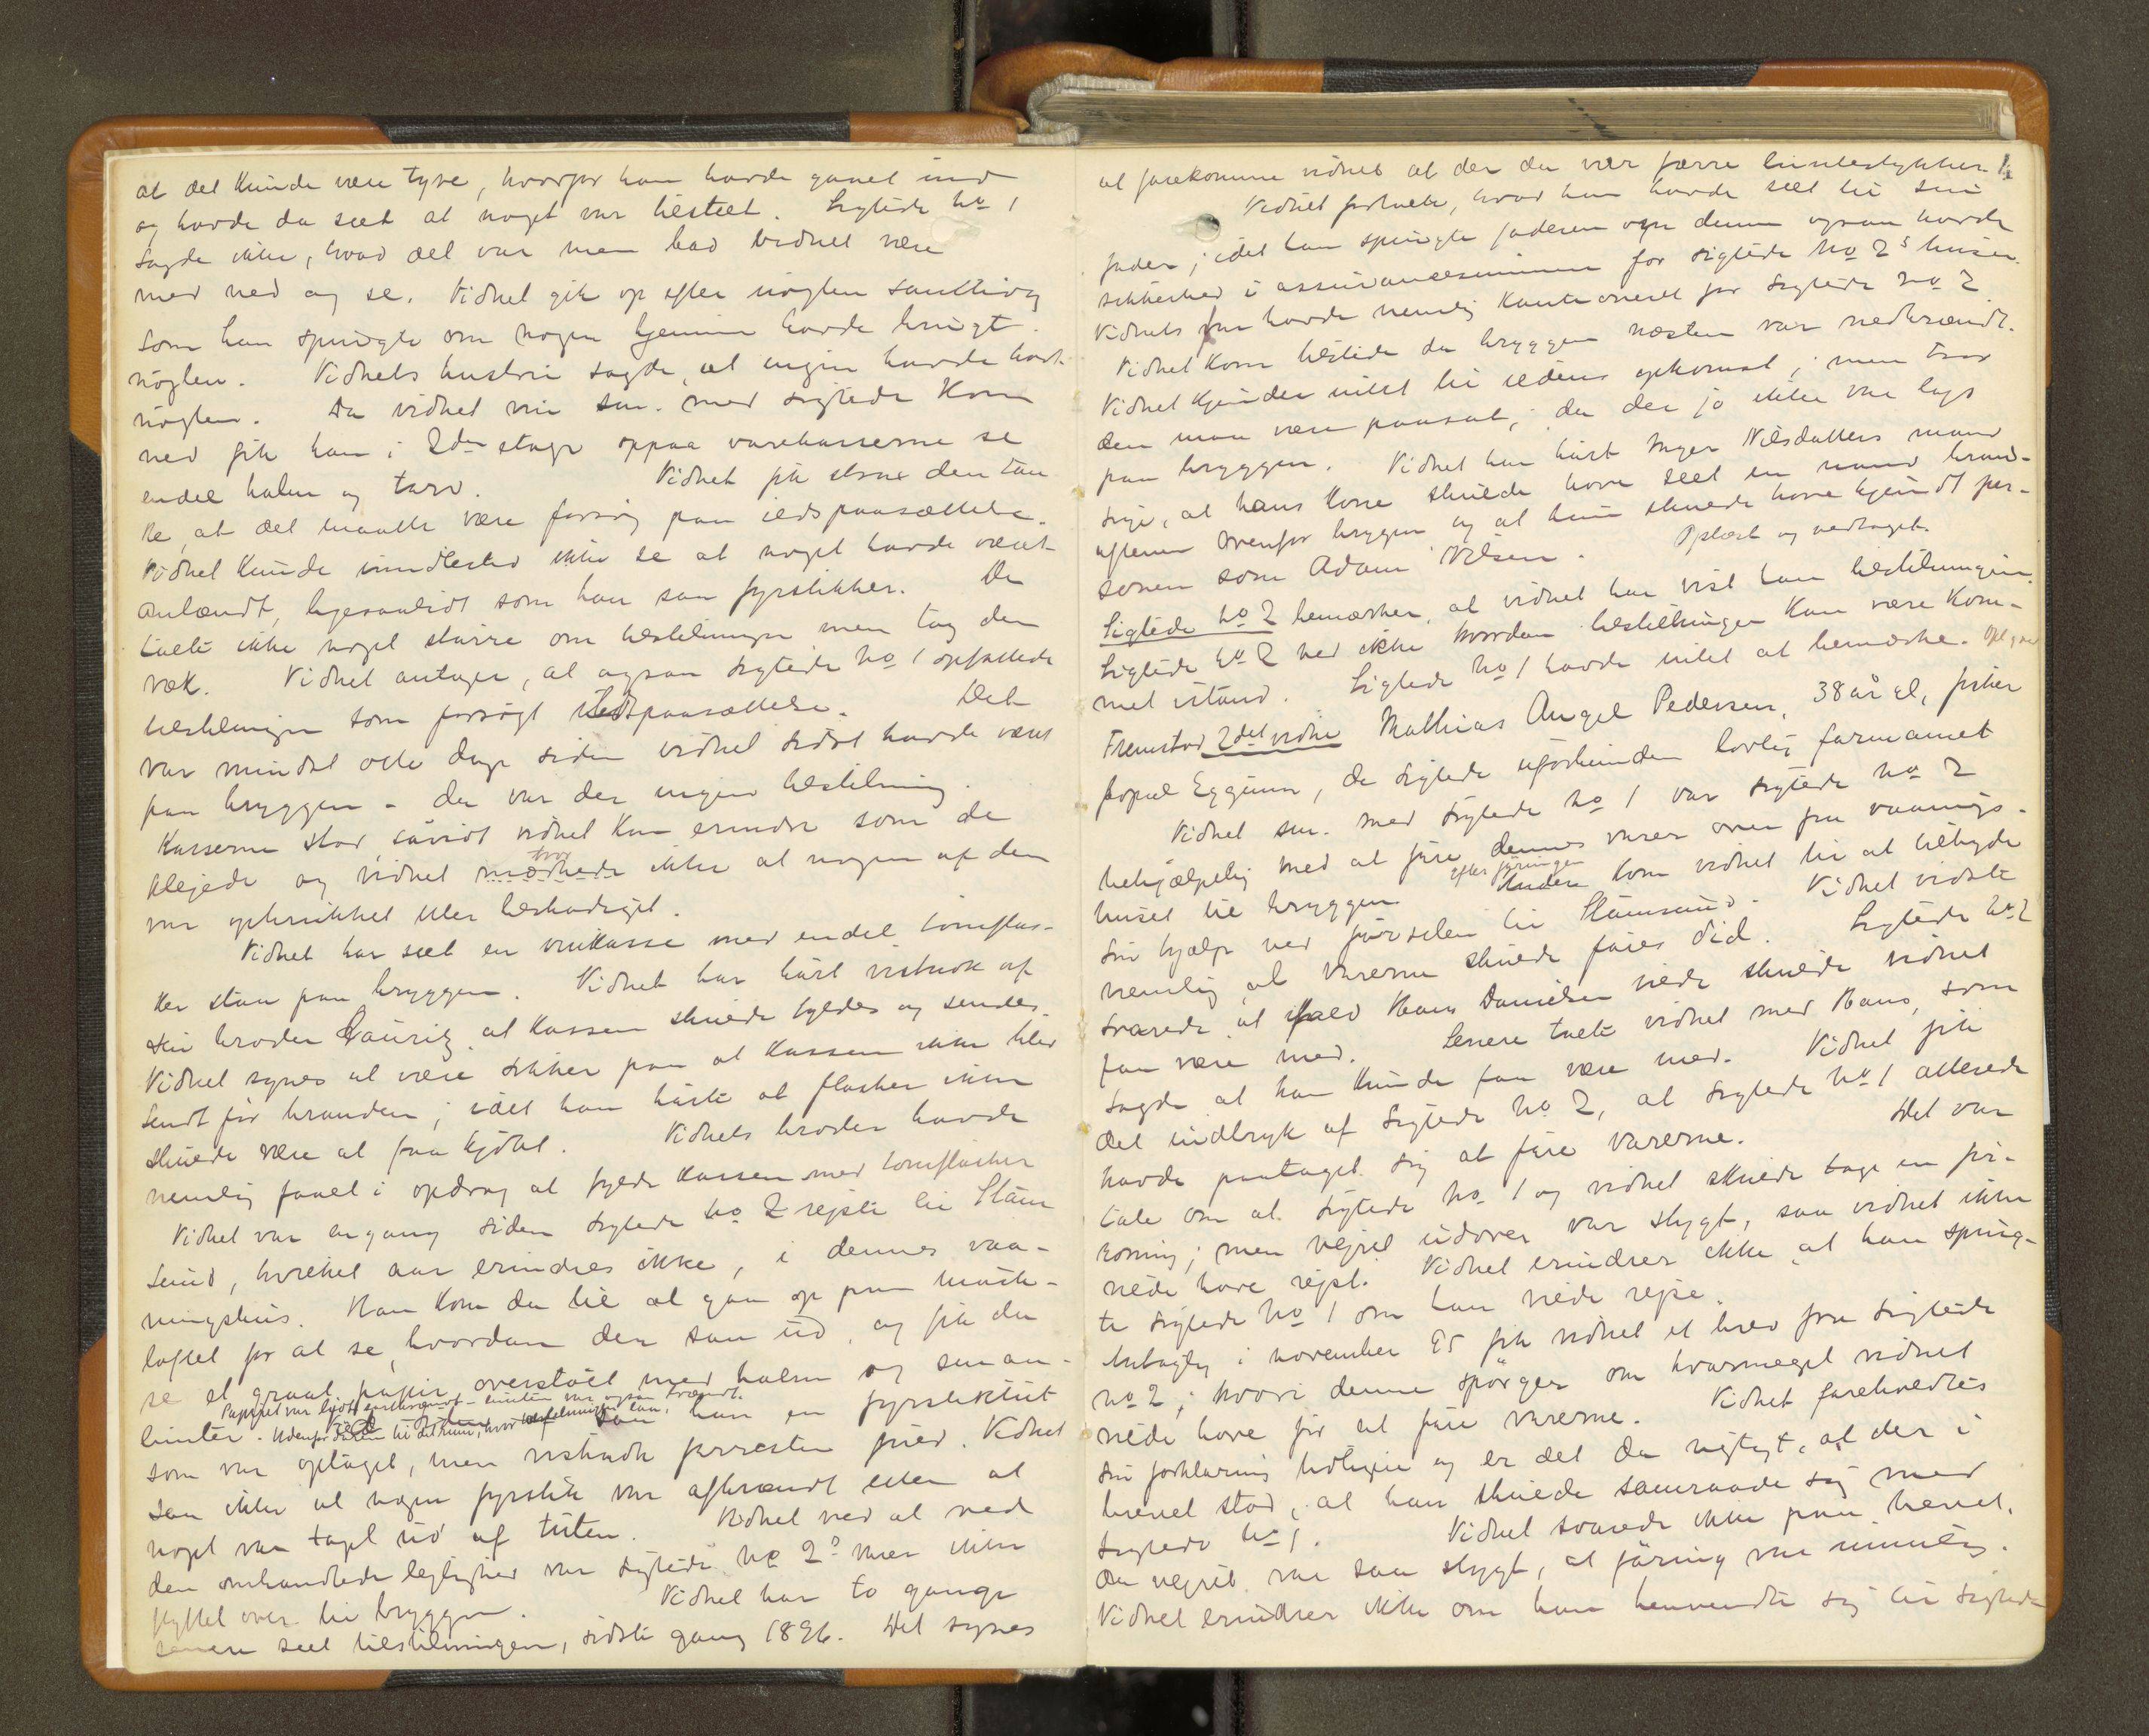 at det kunde være tyve, hvorfor han havde gaaet ind
og havde da seet at noget var tilstelt. Sigtede No 1
sagde ikke, hvad det var men bad vidnet være
med ned og se. Vidnet gik op efter nøglen samtidig
som han spurgte om nogen hjemme havde brugt
nøglen. Vidnets hustru sagde, at ingen havde havt
nøglen. Da vidnet nu sm. med sigtede kom
ned fik han i 2den etage oppaa varekasserne se
endel halm og tørv. Vidnet fik strax den tan
ke, at det maatte være forsøg paa ildspaasættelse.
Vidnet kunde imidlertid ikke se at noget havde været
antændt, ligesaalidt som han saa fyrstikker. De
talte ikke noget større om tilstelningen men tog den
væk. Vidnet antager, at ogsaa sigtede No 1 opfattede
tilstelningen som forsøgt ildspaasættelse. Det
var mindst otte dage siden vidnet sidst havde været
paa bryggen – da var der ingen tilstelning.
Kasserne stod, såvidt vidnet kan erindre som de
plejede og vidnet mærkede ikke at nogen af dem
tror
var opbrukket eller beskadiget.
Vidnet har seet en vinkasse med endel tomflas-
ker staa paa bryggen. Vidnet har hørt nistnok af
sin broder Lauritz at kassen skulde fyldes og sendes.
Vidnet synes at være sikker paa at kassen ikke blev
sendt før branden; idet han hørte at flasker ikke
skulde være at faa kjøbt. Vidnets broder havde
nemlig faaet i opdrag at fylde kassen med tomflasker
Vidnet var engang siden sigtede No 2 rejste til Stam
sund, hvilket aar erindres ikke, i dennes vaa-
ningshus. Han kom da til at gaa op paa mørk-
loftet for at se, hvordan der saa ud, og fik da
se et graat papir overstøet med halm og smaa-
Papiret var lidt antændt – linten var ogsaa brændt.
linter. Udenfor døren til det rum, hvor tilstelningen laa, saa han en fyrstiktut
som var optaget, men nistnok forresten fuld. Vidnet
saa ikke at nogen fyrstik var afbrændt eller at
noget var taget ud af tuten. Vidnet ved at ved
den omhandlede leilighed var sigtede No 2s varer ikke
flyttet over til bryggen. Vidnet har to gange
senere seet tilstelningen, sidste gang 1896. Det synes
at forekomme vidnet at der da var færre lintestykker.
Vidnet fortalte, hvad han havde seet til sin
fader; idet han spurgte faderen om denne ogsaa havde
sikkerhed i assurancesummen for sigtede No 2s huse.
Vidnets far havde nemlig kautioneret for sigtede No 2
Vidnet kom tilstede da bryggen næsten var nedbrændt.
Vidnet kjender intet til ildens opkomst; men tror
den maa være paasat; da der jo ikke var lagt
paa bryggen. Vidnet har hørt Inger Nilsdatters mand
sige, at hans kone skulde have seet en mand brand-
aftenen ovenfor bryggen og at hun skulde have kjendt per-
sonen som Adam Nilsen. Oplæst og vedtaget.
Sigtede No 2 bemærker, at vidnet har vist ham tilstelningen.
Sigtede No 2 ved ikke hvordan tilstelningen kan være kom-
met istand. Sigtede No 1 havde intet at bemærke.
Fremstod 2det vidne Mathias Angel Pedersen, 38 år gl, fisker
bopæl Eggum, de sigtede uforbunden lovlig formanet
Vidnet sm. med sigtede No 1 var sigtede No 2
behjælpelig med at føre dennes varer over fra vaanings-
efter føringen
huset til bryggen. kom vidnet til at tilbyde
sin hjælp ved førselen til Stamsund. Vidnet vidste
nemlig at varerne skulde føres did. Sigtede No 2
svarede at ifald Hans Danielsen vilde skulde vidnet
faa være med. Senere talte vidnet med Hans, som
sagde at han kunde faa være med. Vidnet fik
det indtryk af sigtede No 2, at sigtede No 1 allerede
havde paataget sig at føre varerne. Det var
tale om at sigtede No 1 og vidnet skulde tage en fir-
roring; men vejret udover var stygt, saa vidnet ikke
vilde have rejst. Vidnet erindrer ikke at han spurg-
te sigtede No 1 om han vilde rejse.
Antagelig i november 95 fik vidnet et brev fra sigtede
No 2, hvori denne spørger om hvormeget vidnet
vilde have for at føre varerne. Vidnet foreholdtes
sin forklaring tidligere og er det da rigtigt, at der i
brevet stod, at han skulde samraade sig med
sigtede No 1. Vidnet svarede ikke paa brevet.
Da vejret var saa stygt, at føring var umulig.
Vidnet erindrer ikke om han henvendte sig til sigtede